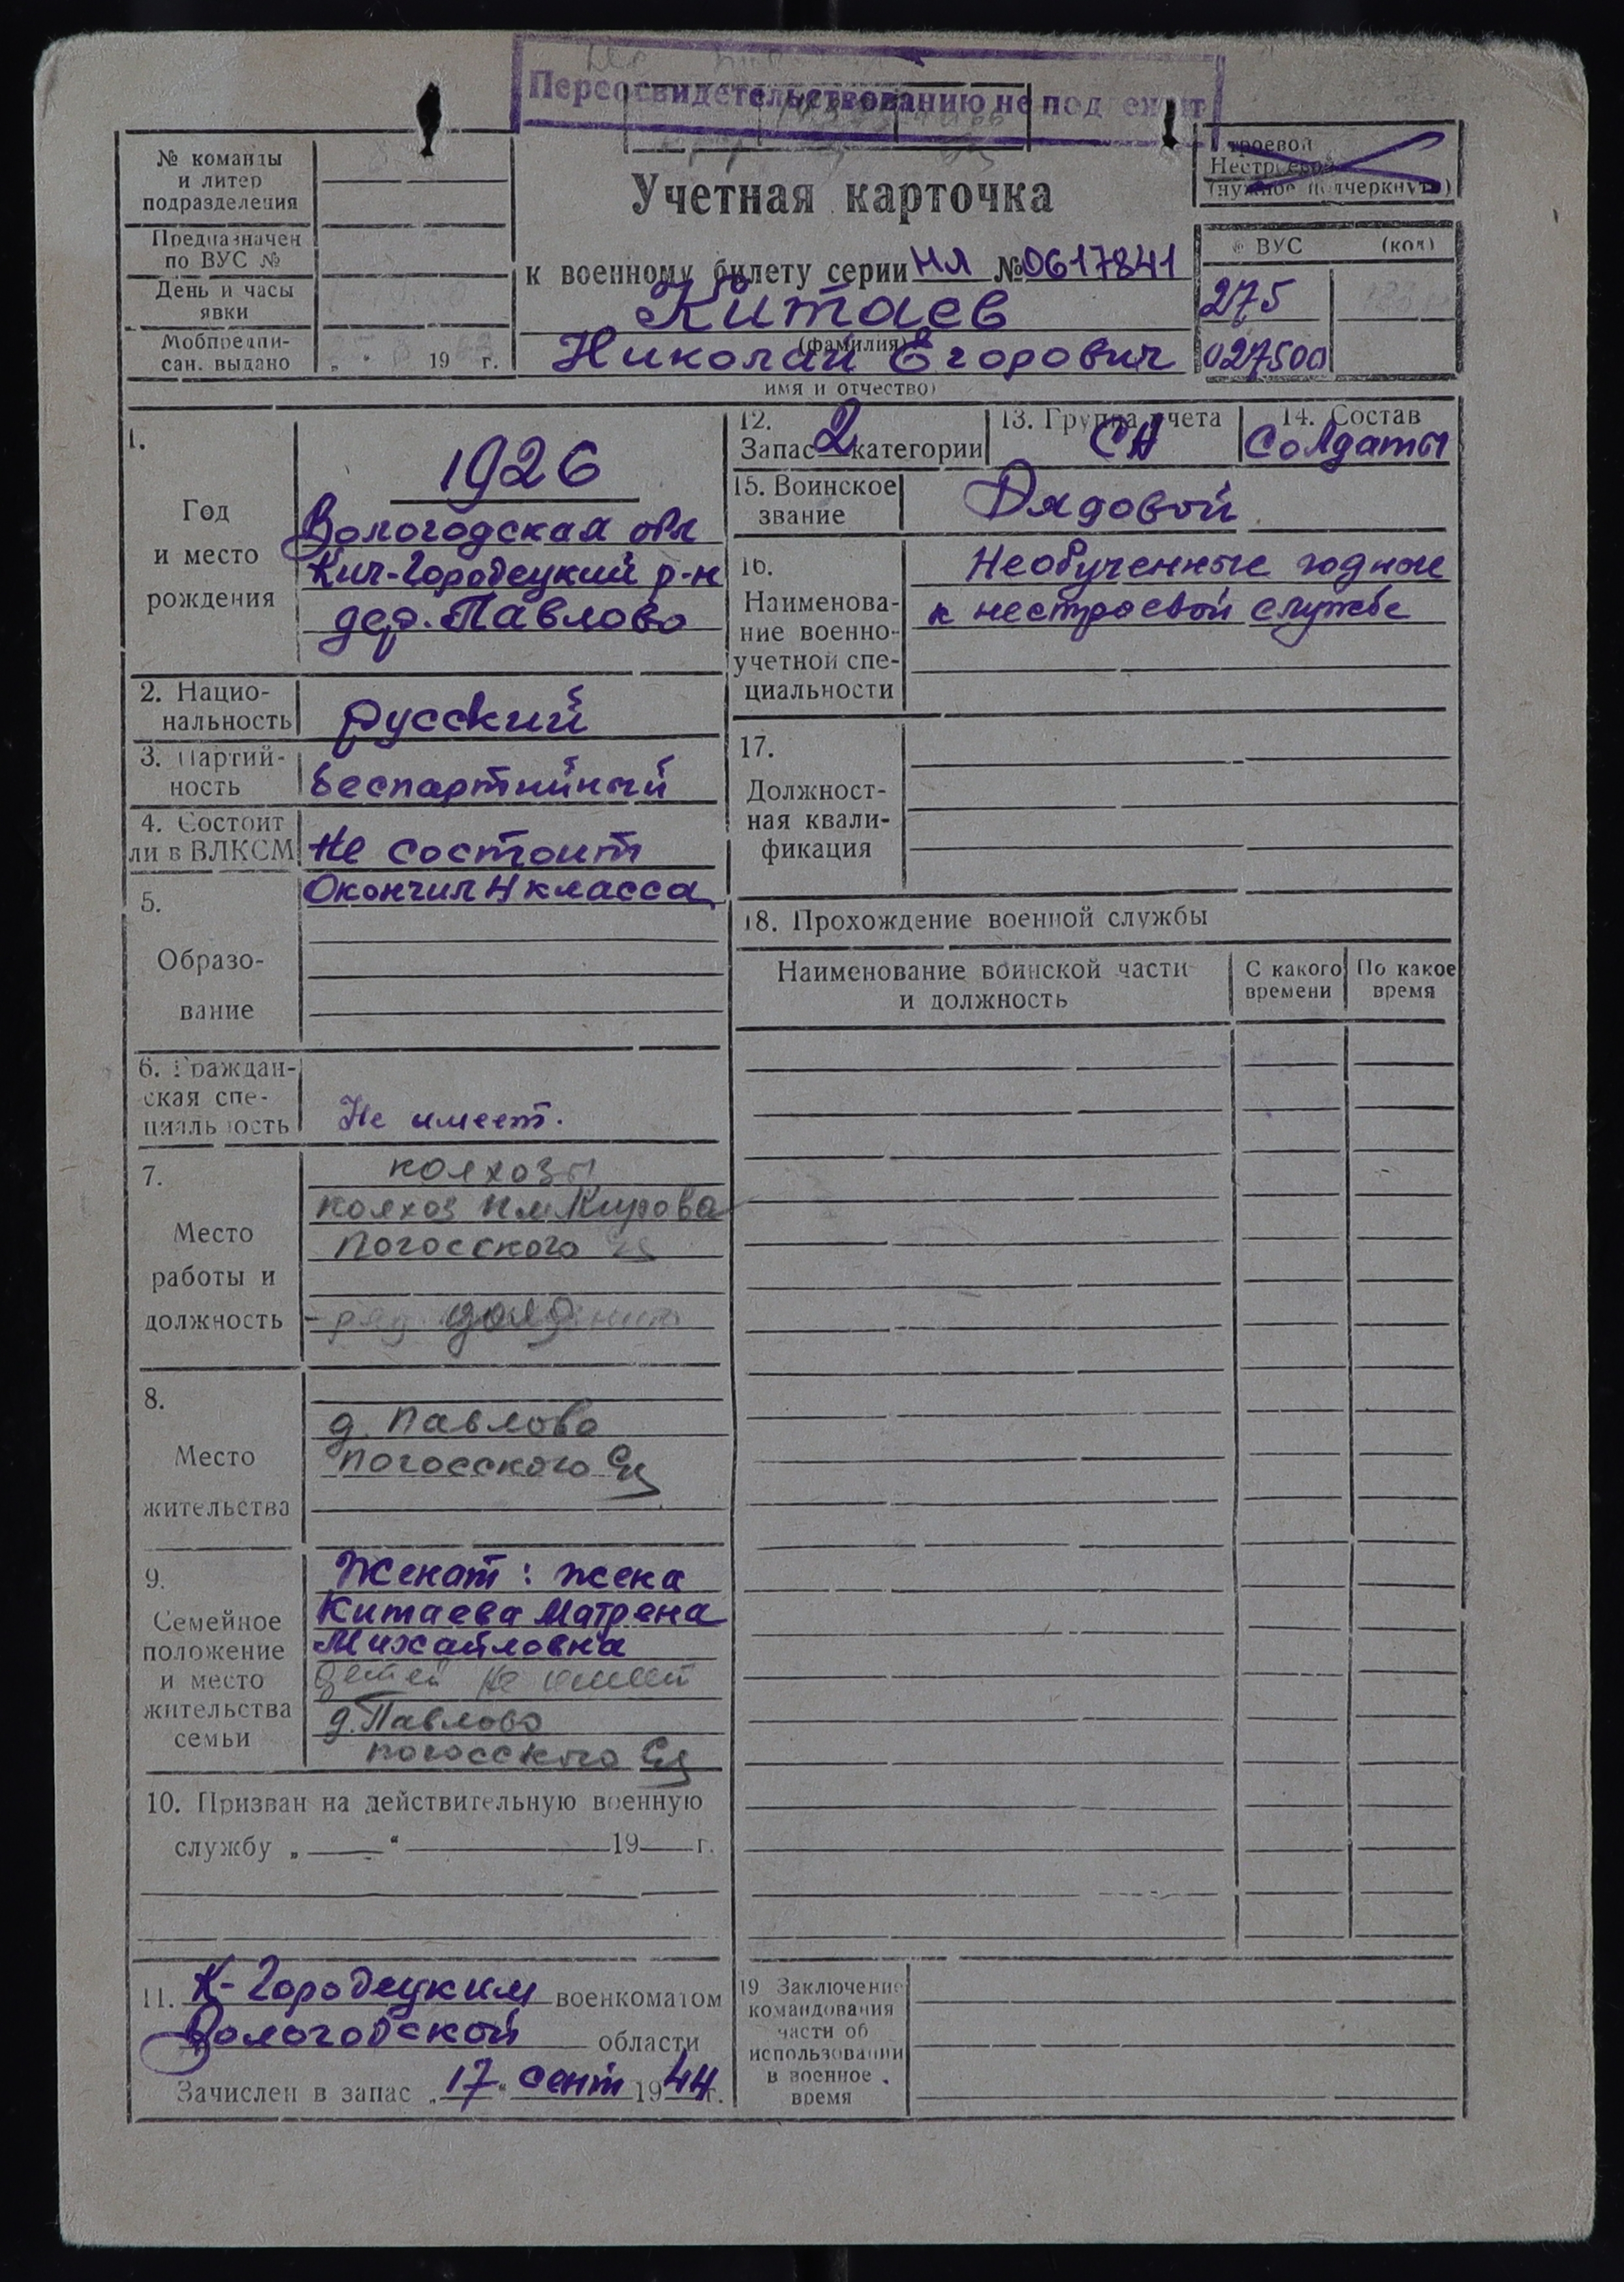 Переосвидетельствованию не подлежит
№ команды
и литер
подразделения
Предназначен
по ВУС №
День и часы
явки
Мобпредпи-
сан. выдано „ “ 19 г.
Учетная карточка
к военному билету серии НЛ № 0617841
Китаев
(фамилия)
Николай Егорович
имя и отчество)
Строевой
Нестроевой
(нужное подчеркнуть)
№ ВУС (код)
275
027500
1.
Год
и место
рождения
1926
Вологодская обл
Кич-Городецкий р-н
дер. Павлово
2. Нацио-
нальность
русский
3. Партий-
ность
беспартийный
4. Состоит
ли в ВЛКСМ
Не состоит
5.
Образо-
вание
Окончил 4 класса
6. Граждан-
ская спе-
циальность
Не имеет.
7.
Место
работы и
должность
колхозы
колхоз им Кирова
Погосского
8.
Место
жительства
д. Павлово
Погосского с/с
9.
Семейное
положение
и место
жительства
семьи
Женат: жена
Китаева Матрена
Михайловна
детей не имеет
д. Павлово
Погосского с/с
10. Призван на действительную военную
службу „ — “ — 19 — г.
11. К-Городецким военкоматом
Вологодской области
Зачислен в запас „17“ сент 1944 г.
12.
Запас 2 категории
13. Группа учета
СА
14. Состав
Солдаты
15. Воинское
звание
Рядовой
16.
Наименова-
ние военно-
учетной спе-
циальности
Необученные годные
к нестроевой службе
17.
Должност-
ная квали-
фикация
18. Прохождение военной службы
Наименование воинской части
и должность
С какого
времени
По какое
время
19 Заключение
командования
части об
использовании
в военное
время